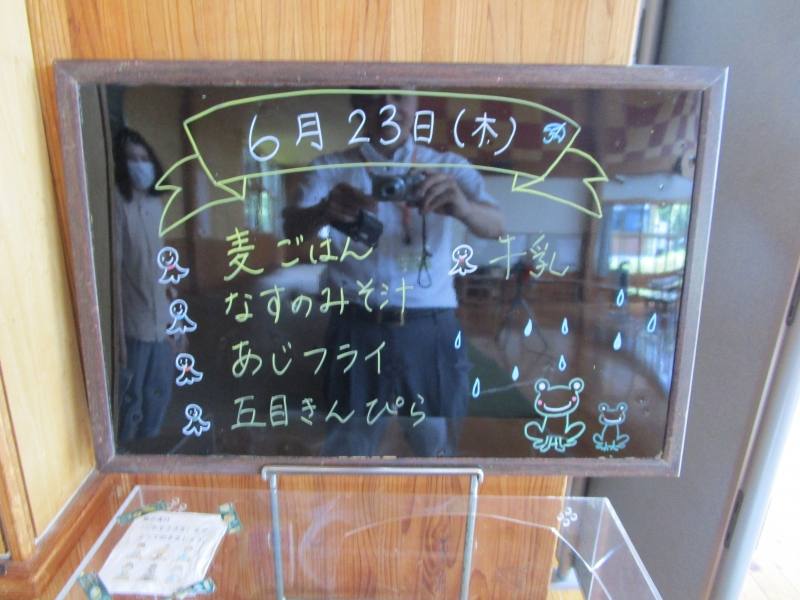 6月23日(木)
麦ごはん
牛乳
なすのみそ汁
あじフライ
五目きんぴら